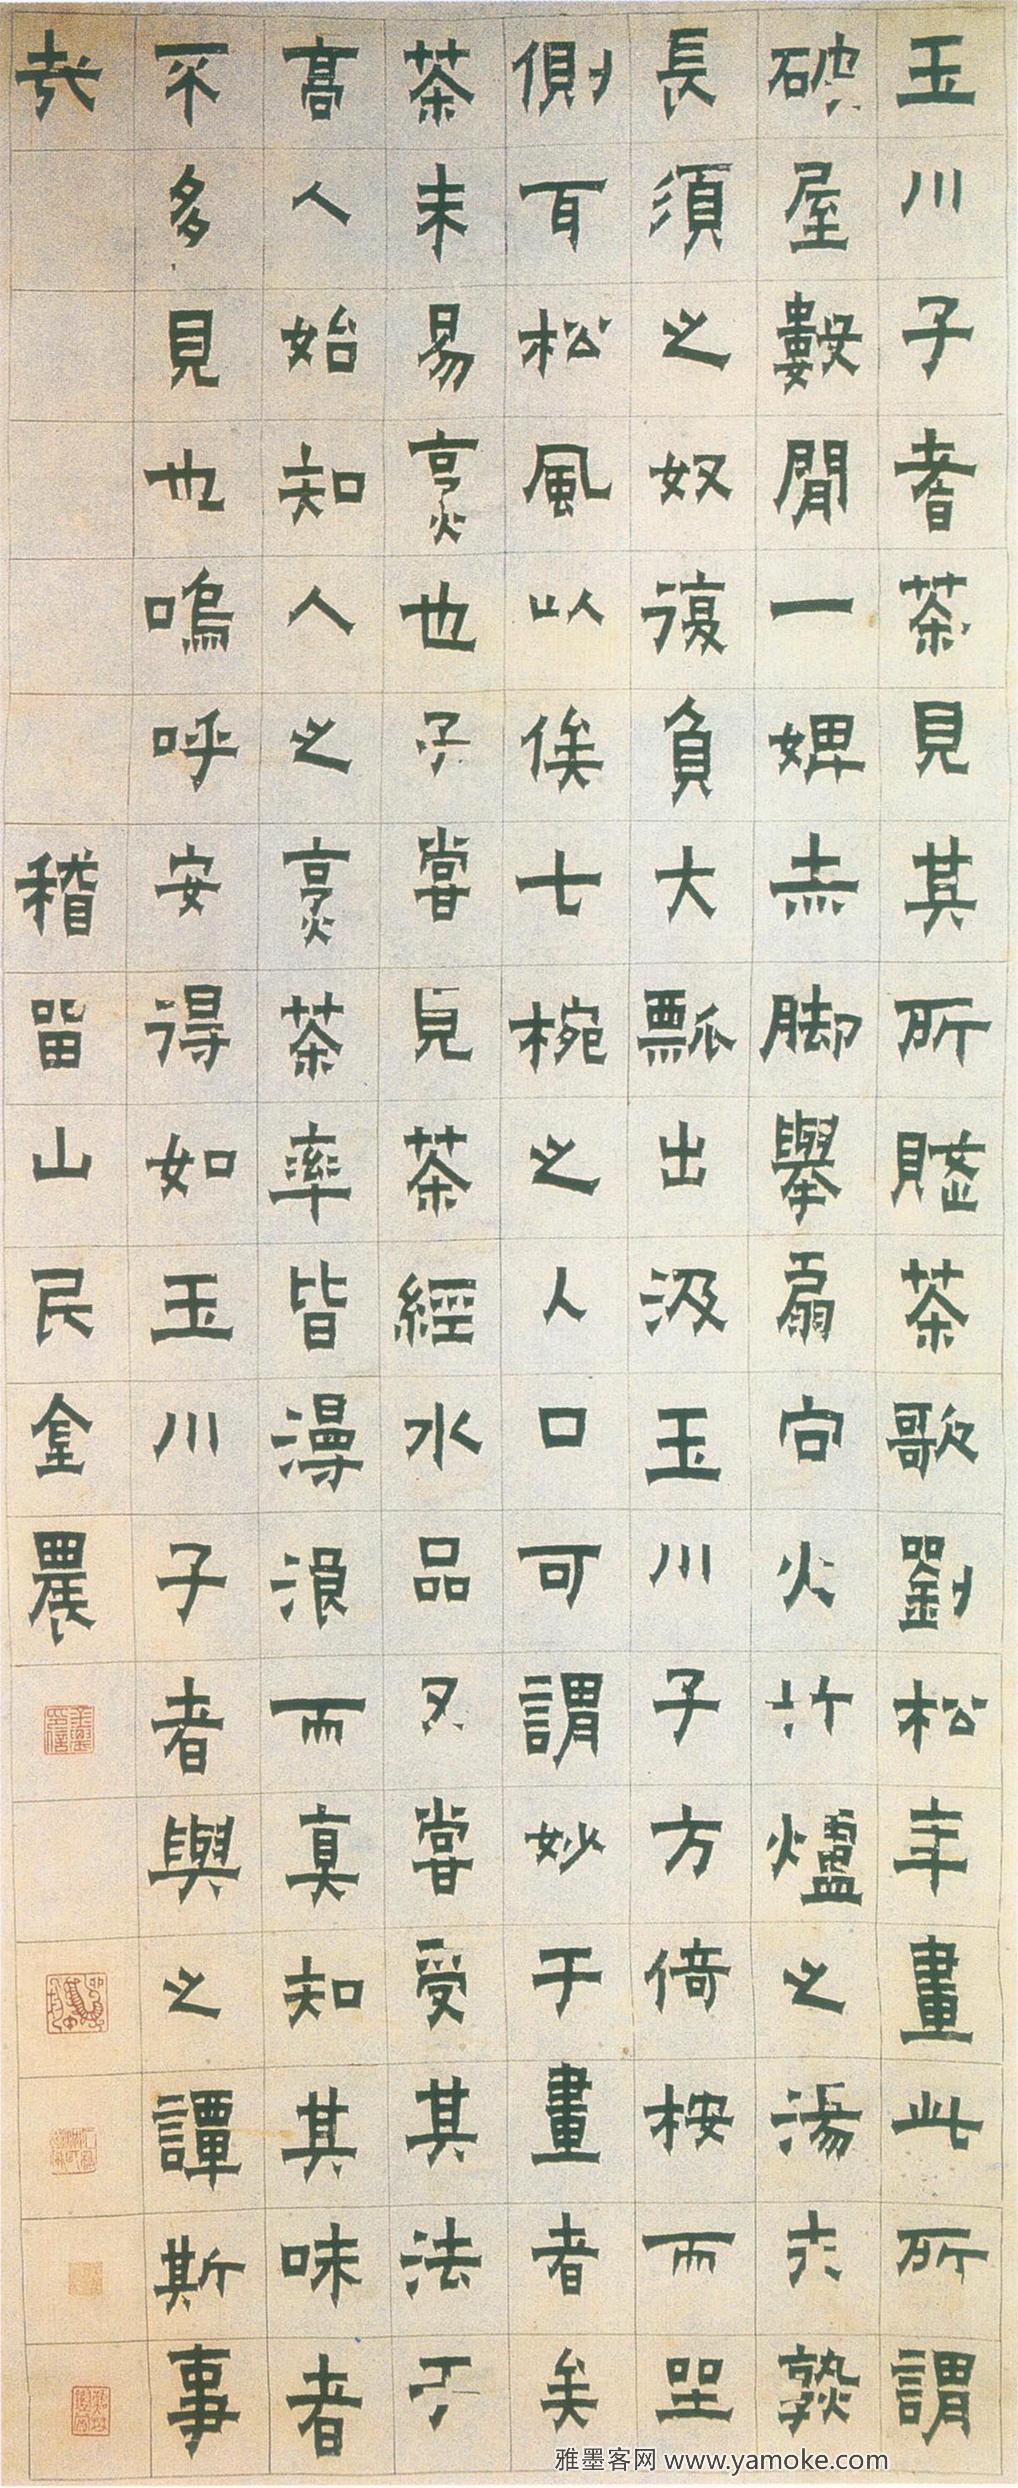 玉川子耆茶見其所賦茶歌劉松年畫此所謂
破屋數間一婢赤脚舉扇向火竹爐之湯未熟
長須之奴復負大瓢出汲玉川子方倚桉而坐
側耳松風以俟七椀之入口可謂妙于畫者矣
茶未易亨也予嘗見茶經水品又嘗受其法于
高人始知人之亨茶率皆漫浪而真知其味者
不多見也嗚呼安得如玉川子者與之譚斯事
哉　稽留山民金農
雅墨客网 www.yamoke.com